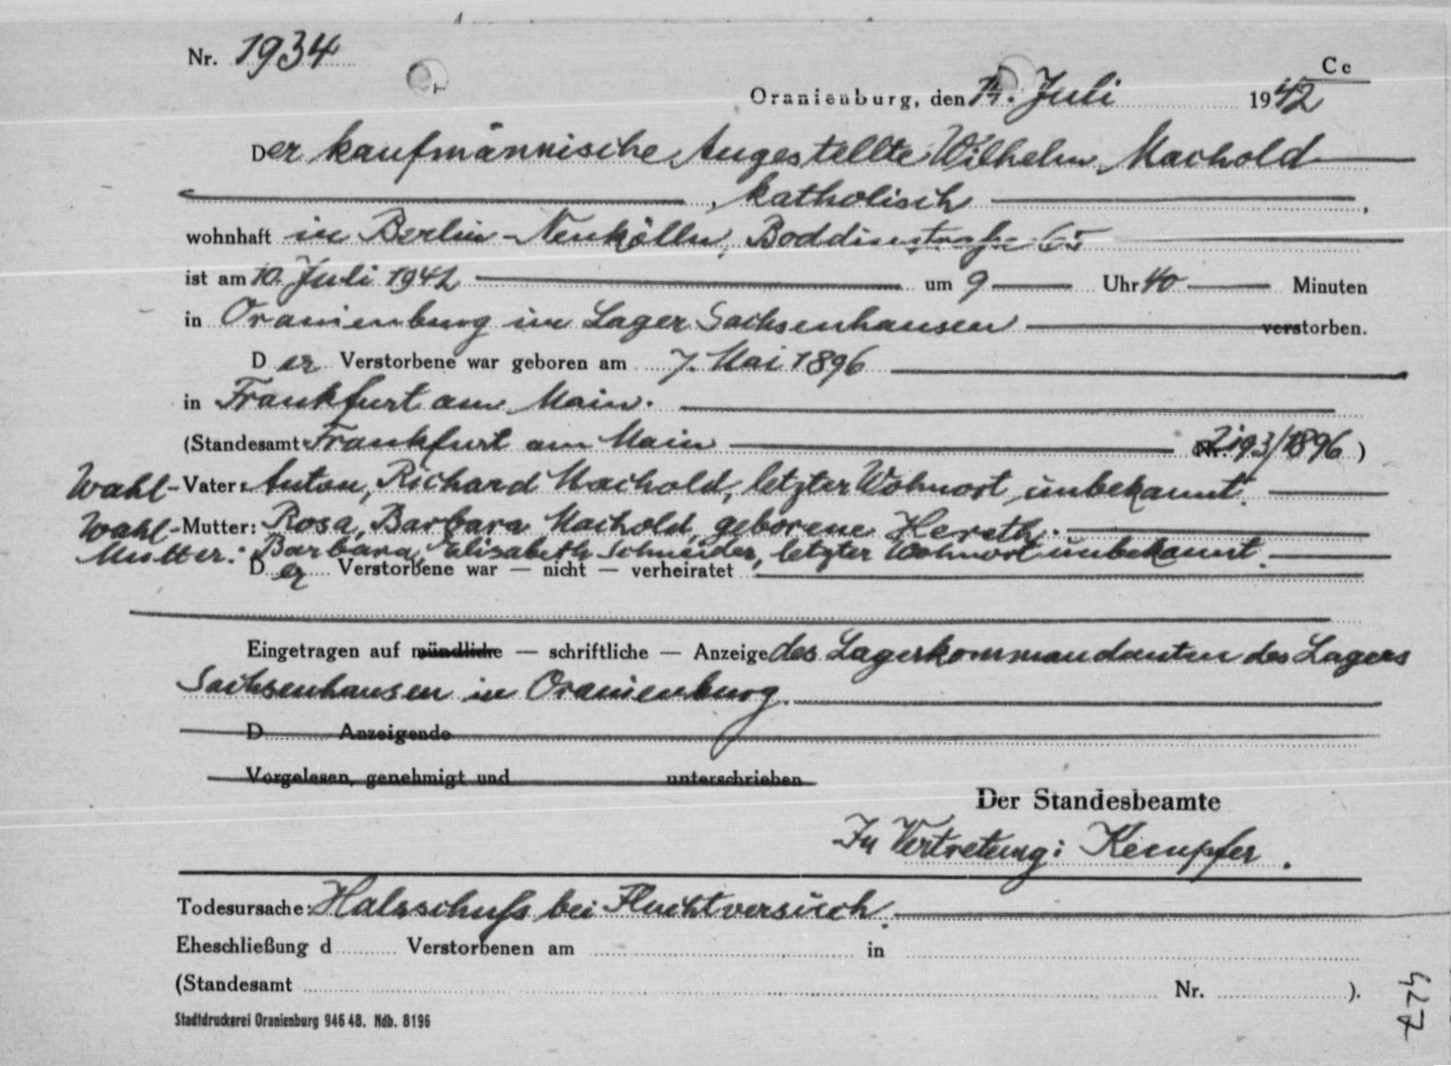 Nr. 1934
Cc
Oranienburg, den 14. Juli 1942
Der kaufmännische Angestellte Wilhelm Machold
, katholisch ,
wohnhaft in Berlin-Neukölln, Boddinstraße 65
ist am 10. Juli 1942 um 9 Uhr 40 Minuten
in Oranienburg im Lager Sachsenhausen verstorben.
Der Verstorbene war geboren am 7. Mai 1896
in Frankfurt am Main.
(Standesamt Frankfurt am Main Nr. /1896 )
Wahl-Vater: Anton, Richard Machold, letzter Wohnort unbekannt.
Wahl-Mutter: Rosa, Barbara Machold, geborene Hereth.
Mutter: Barbara, Elisabeth Schneider, letzter Wohnort unbekannt.
Der Verstorbene war — nicht — verheiratet
Eingetragen auf mündliche — schriftliche — Anzeige des Lagerkommandanten des Lagers
Sachsenhausen in Oranienburg.
D Anzeigende
Vorgelesen, genehmigt und unterschrieben
Der Standesbeamte
In Vertretung: Kempfer.
Todesursache: Halsschuß bei Fluchtversuch.
Eheschließung d Verstorbenen am in
(Standesamt Nr. ).
Stadtdruckerei Oranienburg 946 48. Ndb. 8196